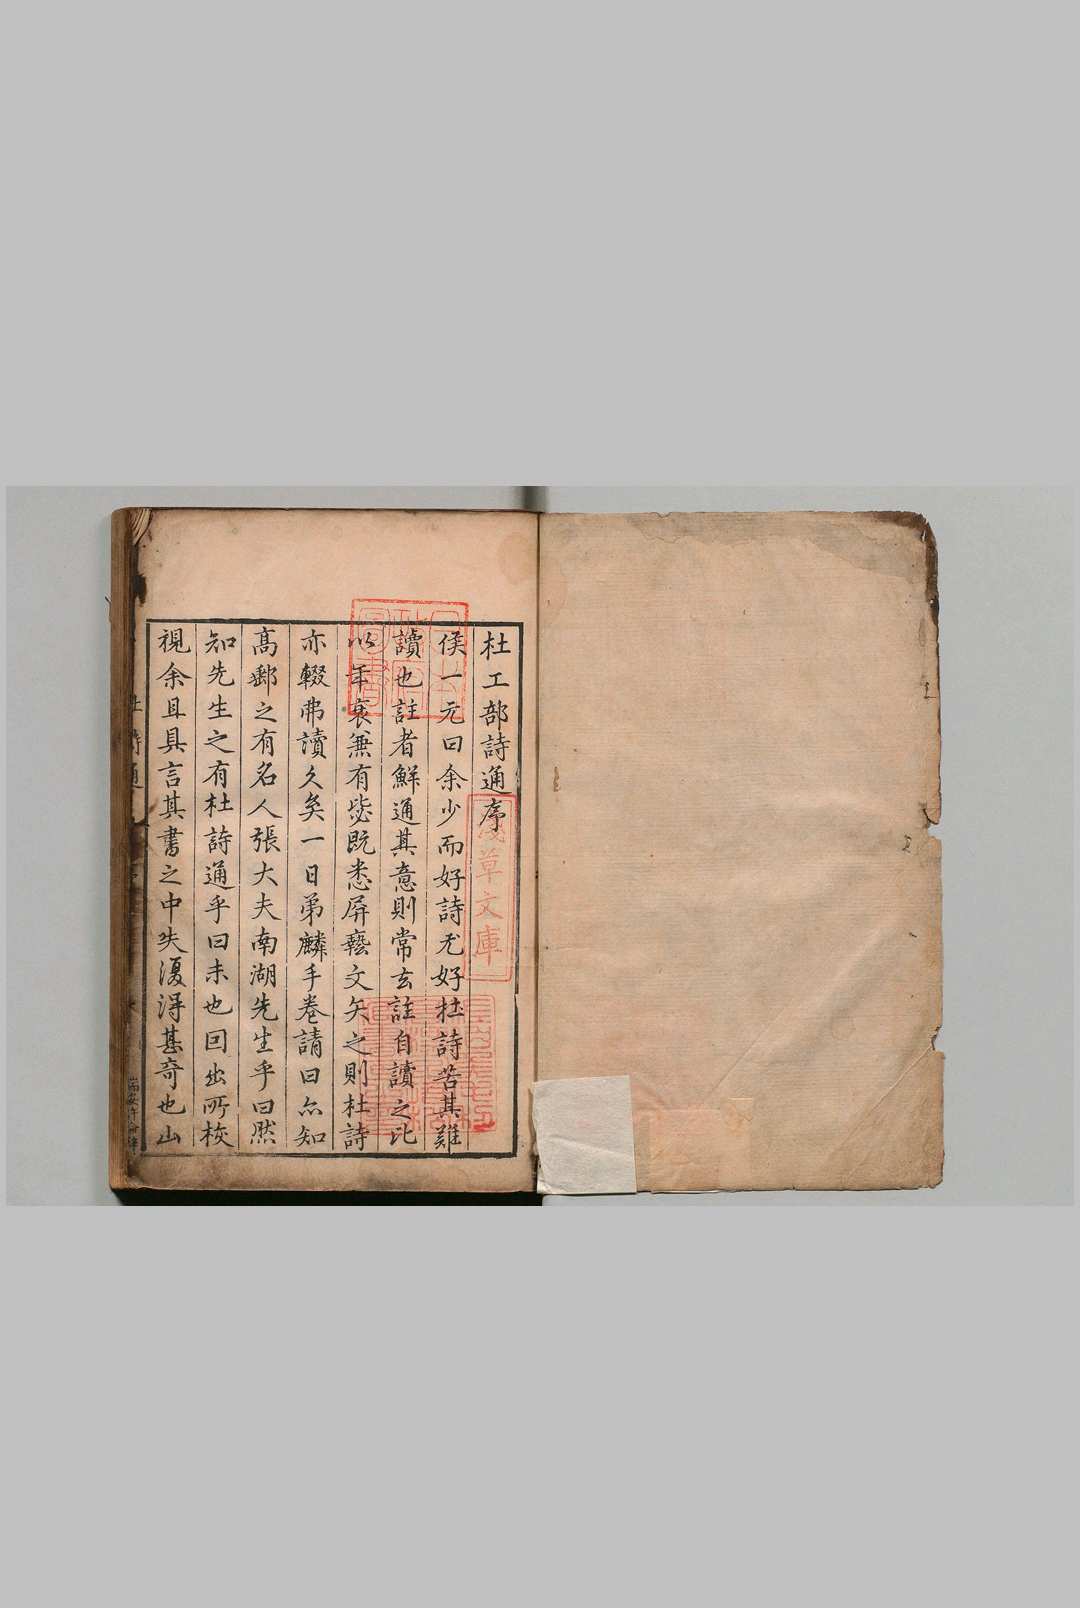 杜工部詩通序
侯一元曰余少而好詩尤好杜詩苦其難
讀也註者鮮通其意則常去註自讀之比
以年衰兼有毖既悉屏藝文矢之則杜詩
亦輟弗讀久矣一日弟麟手卷請曰亦知
高郵之有名人張大夫南湖先生乎曰熙
知先生之有杜詩通乎曰未也回出所校
視余且具言其書之中失復得甚奇也山
杜詩通
淺草文庫
圖書